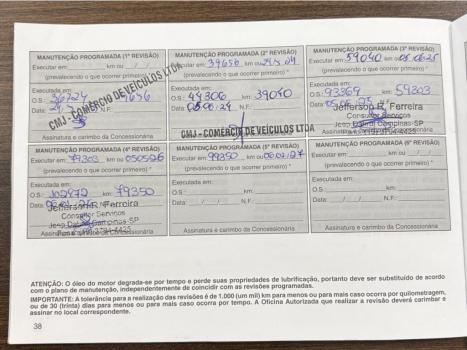 MANUTENÇÃO PROGRAMADA (1ª REVISÃO)
Executar em: km ou / /
(prevalecendo o que ocorrer primeiro) *
Executada em:
O.S.: km:
Data: N.F.:
CMJ - COMÉRCIO DE VEÍCULOS LTDA
Assinatura e carimbo da Concessionária
MANUTENÇÃO PROGRAMADA (2ª REVISÃO)
Executar em: km ou
(prevalecendo o que ocorrer primeiro) *
Executada em:
O.S.: 44306 km: 39040
Data: 05.06.24 N.F.:
CMJ - COMÉRCIO DE VEÍCULOS LTDA
Assinatura e carimbo da Concessionária
MANUTENÇÃO PROGRAMADA (3ª REVISÃO)
Executar em: 59040 km ou 05.06.25
(prevalecendo o que ocorrer primeiro) *
Executada em:
O.S.: 93369 km: 59303
Data:
Jefferson R. Ferreira
Consultor Serviços
Campinas-SP
Assinatura e carimbo da Concessionária
MANUTENÇÃO PROGRAMADA (4ª REVISÃO)
Executar em: 79303 km ou 050526
(prevalecendo o que ocorrer primeiro) *
Executada em:
O.S.: 102872 km: 79350
Data:
Jefferson R. Ferreira
Consultor Serviços
Campinas SP
Assinatura e carimbo da Concessionária
MANUTENÇÃO PROGRAMADA (5ª REVISÃO)
Executar em: 99350 km ou
(prevalecendo o que ocorrer primeiro) *
Executada em:
O.S.: km:
Data: / / N.F.:
Assinatura e carimbo da Concessionária
MANUTENÇÃO PROGRAMADA (6ª REVISÃO)
Executar em: km ou / /
(prevalecendo o que ocorrer primeiro) *
Executada em:
O.S.: km:
Data: / / N.F.:
Assinatura e carimbo da Concessionária
ATENÇÃO: O óleo do motor degrada-se por tempo e perde suas propriedades de lubrificação, portanto deve ser substituído de acordo
com o plano de manutenção, independentemente de coincidir com as revisões programadas.
IMPORTANTE: A tolerância para a realização das revisões é de 1.000 (um mil) km para menos ou para mais caso ocorra por quilometragem,
ou de 30 (trinta) dias para menos ou para mais caso ocorra por tempo. A Oficina Autorizada que realizar a revisão deverá carimbar e
assinar no local correspondente.
38